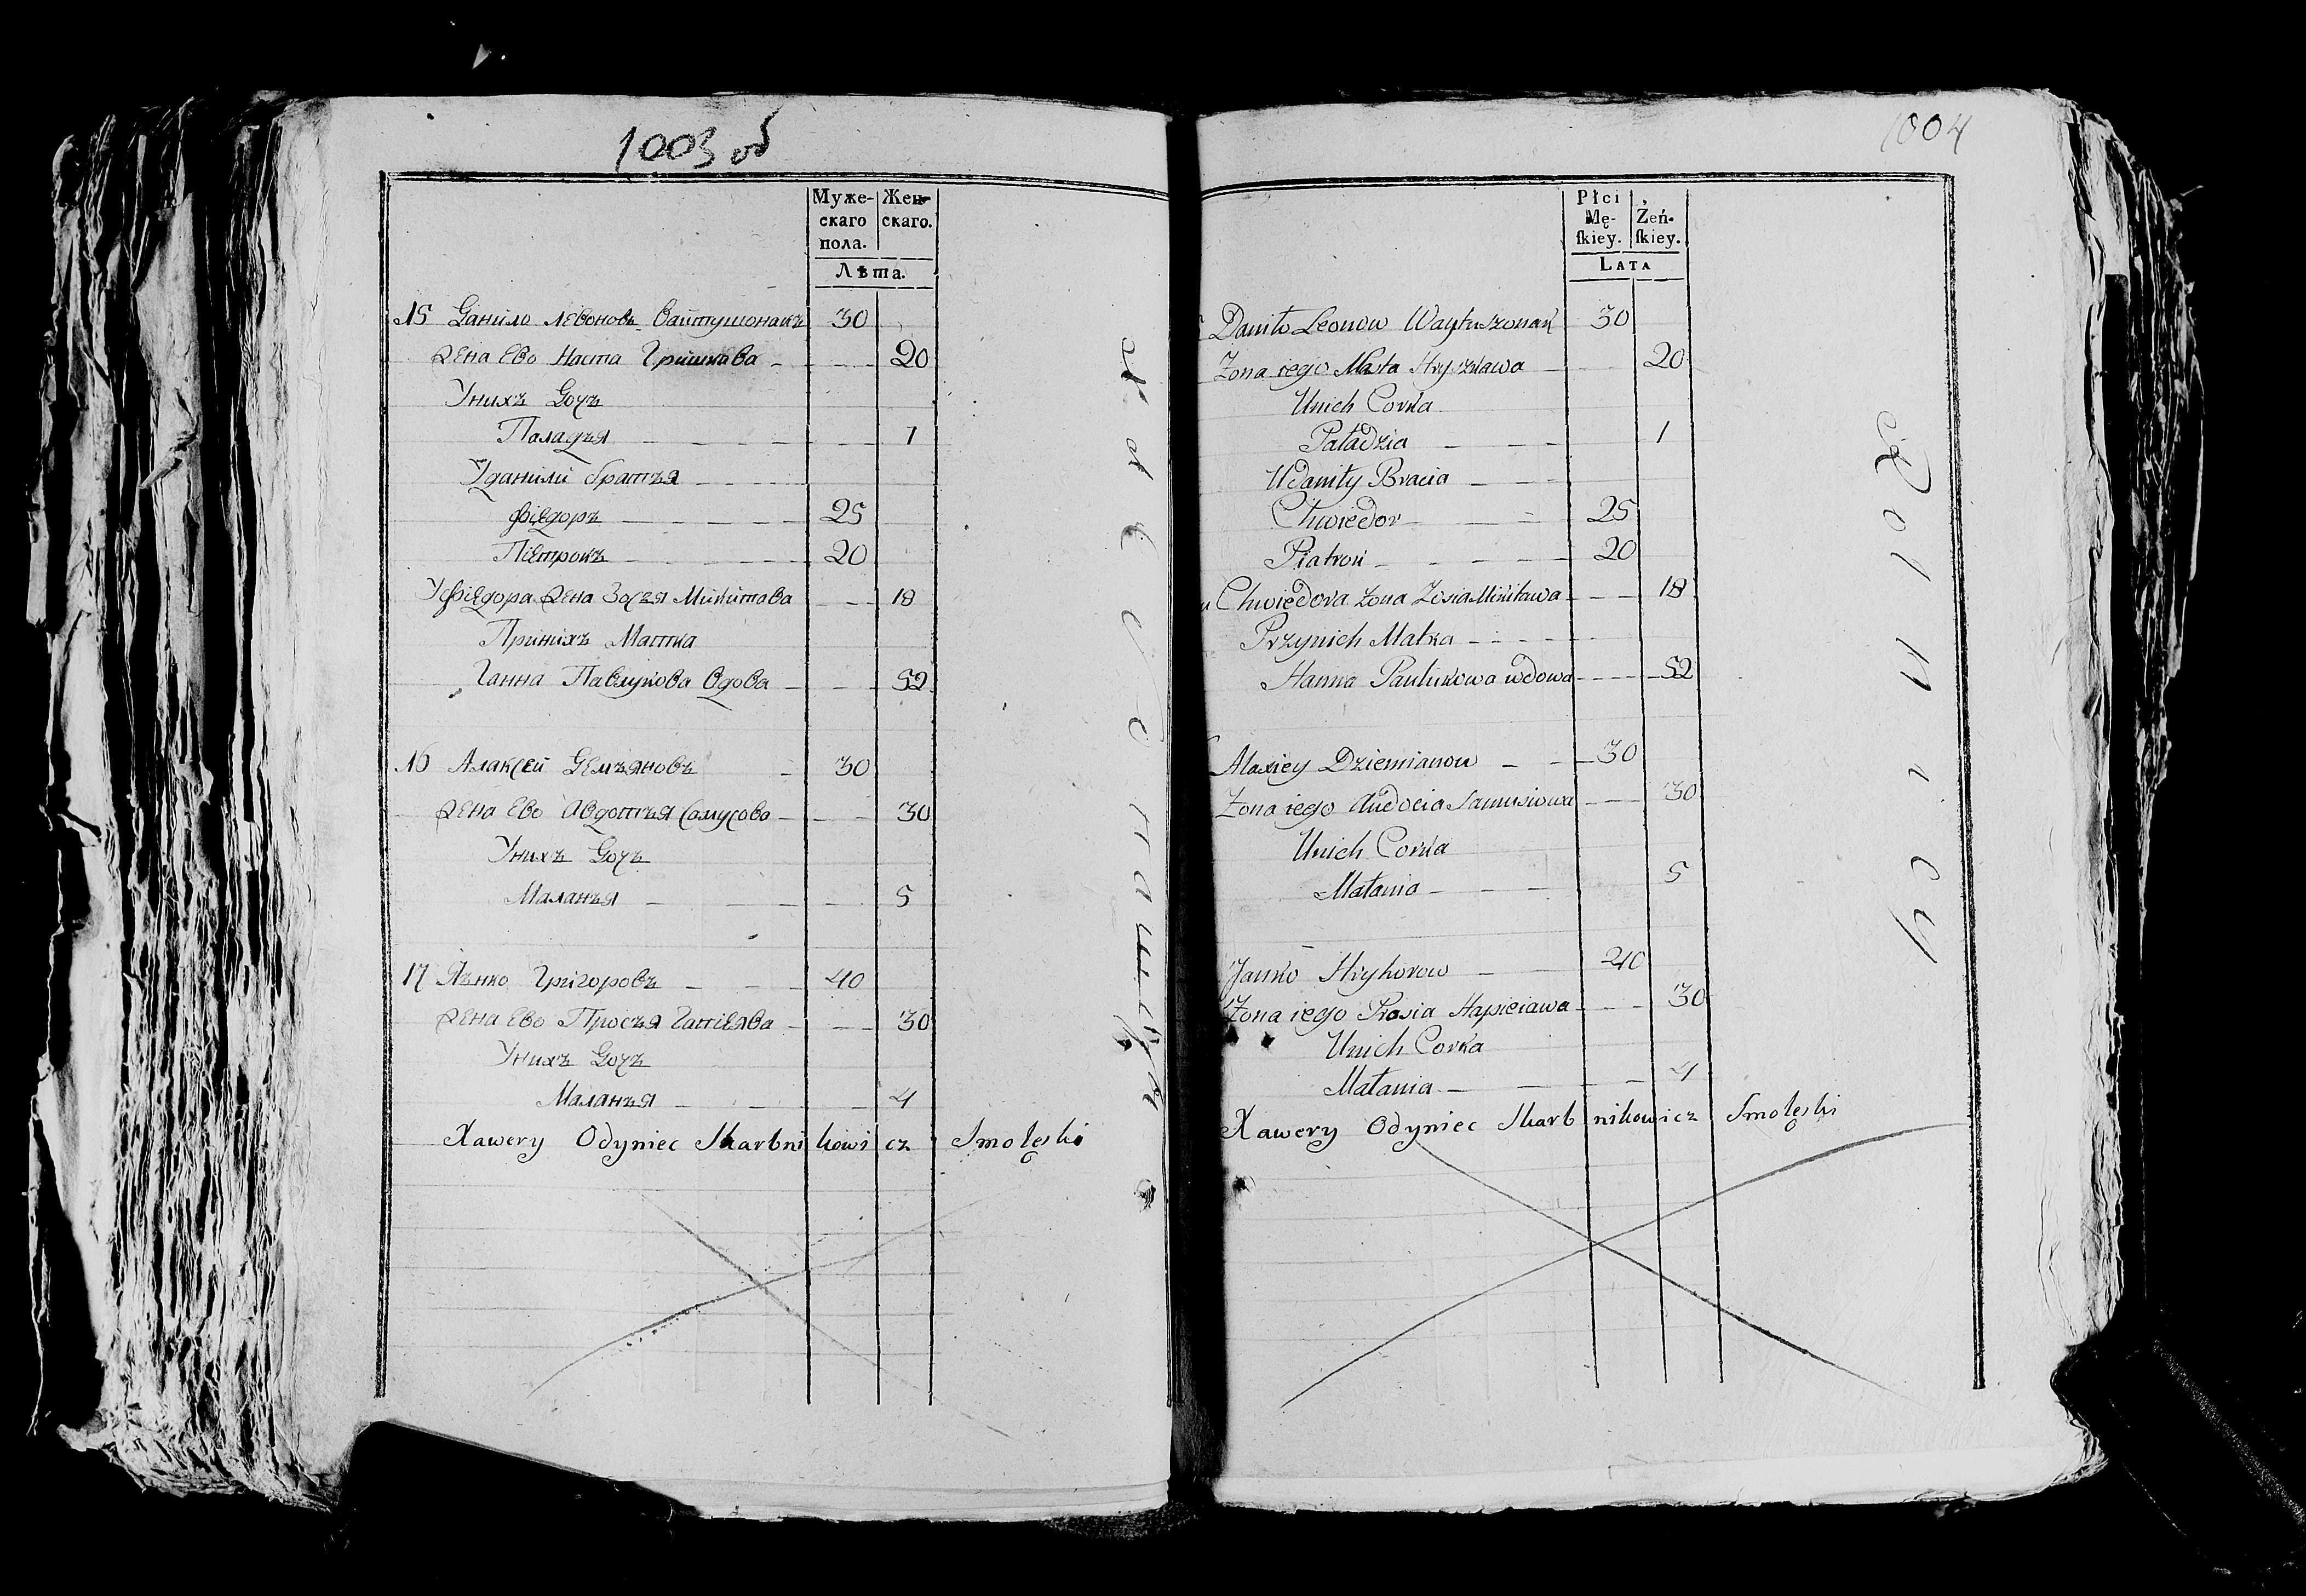 1003 об
Муже-
скаго
пола.
Жен-
скаго.
Лѣта.
15 Данило Левоновъ Вайтушонакъ 30
Жена Ево Наста Гришкова 20
Унихъ Дочъ
Паладзя 1
Уданили братъя
Фіедоръ 25
Піетрокъ 20
Уфіедора Жена Зосъя Микитова 18
Принихъ Матка
Ганна Павлукова Вдова 52
16 Алаксей Демъяновъ 30
Жена Ево Авдотъя Самусова 30
Унихъ Дочъ
Маланъя 5
17 Янко Григоровъ 40
Жена Ево Просъя 30
Унихъ Дочъ
Маланъя 4
Xawery Odyniec Skarbnikowicz Smoleski
1004
Płci
Mę-
ſkiey.
Żeń-
ſkiey.
LATA
Daniło Leonow Waytuszonak 30
Zona iego Nasta Hryszkawa 20
Unich Corka
Paładzia 1
Udaniły Bracia
Chwiedor 25
Piatrok 20
u Chwiedora zona Zosia Mikitawa 18
Przynich Matka
Hanna Paulukowa wdowa 52
Alaxiey Dziemianow 30
Zona iego Audocia Samusiowa 30
Unich Corka
Małania 5
Janko Hryhorow 40
Zona iego Prosia 30
Unich Corka
Małania 4
Xawery Odyniec Skarbnikowicz Smoleski